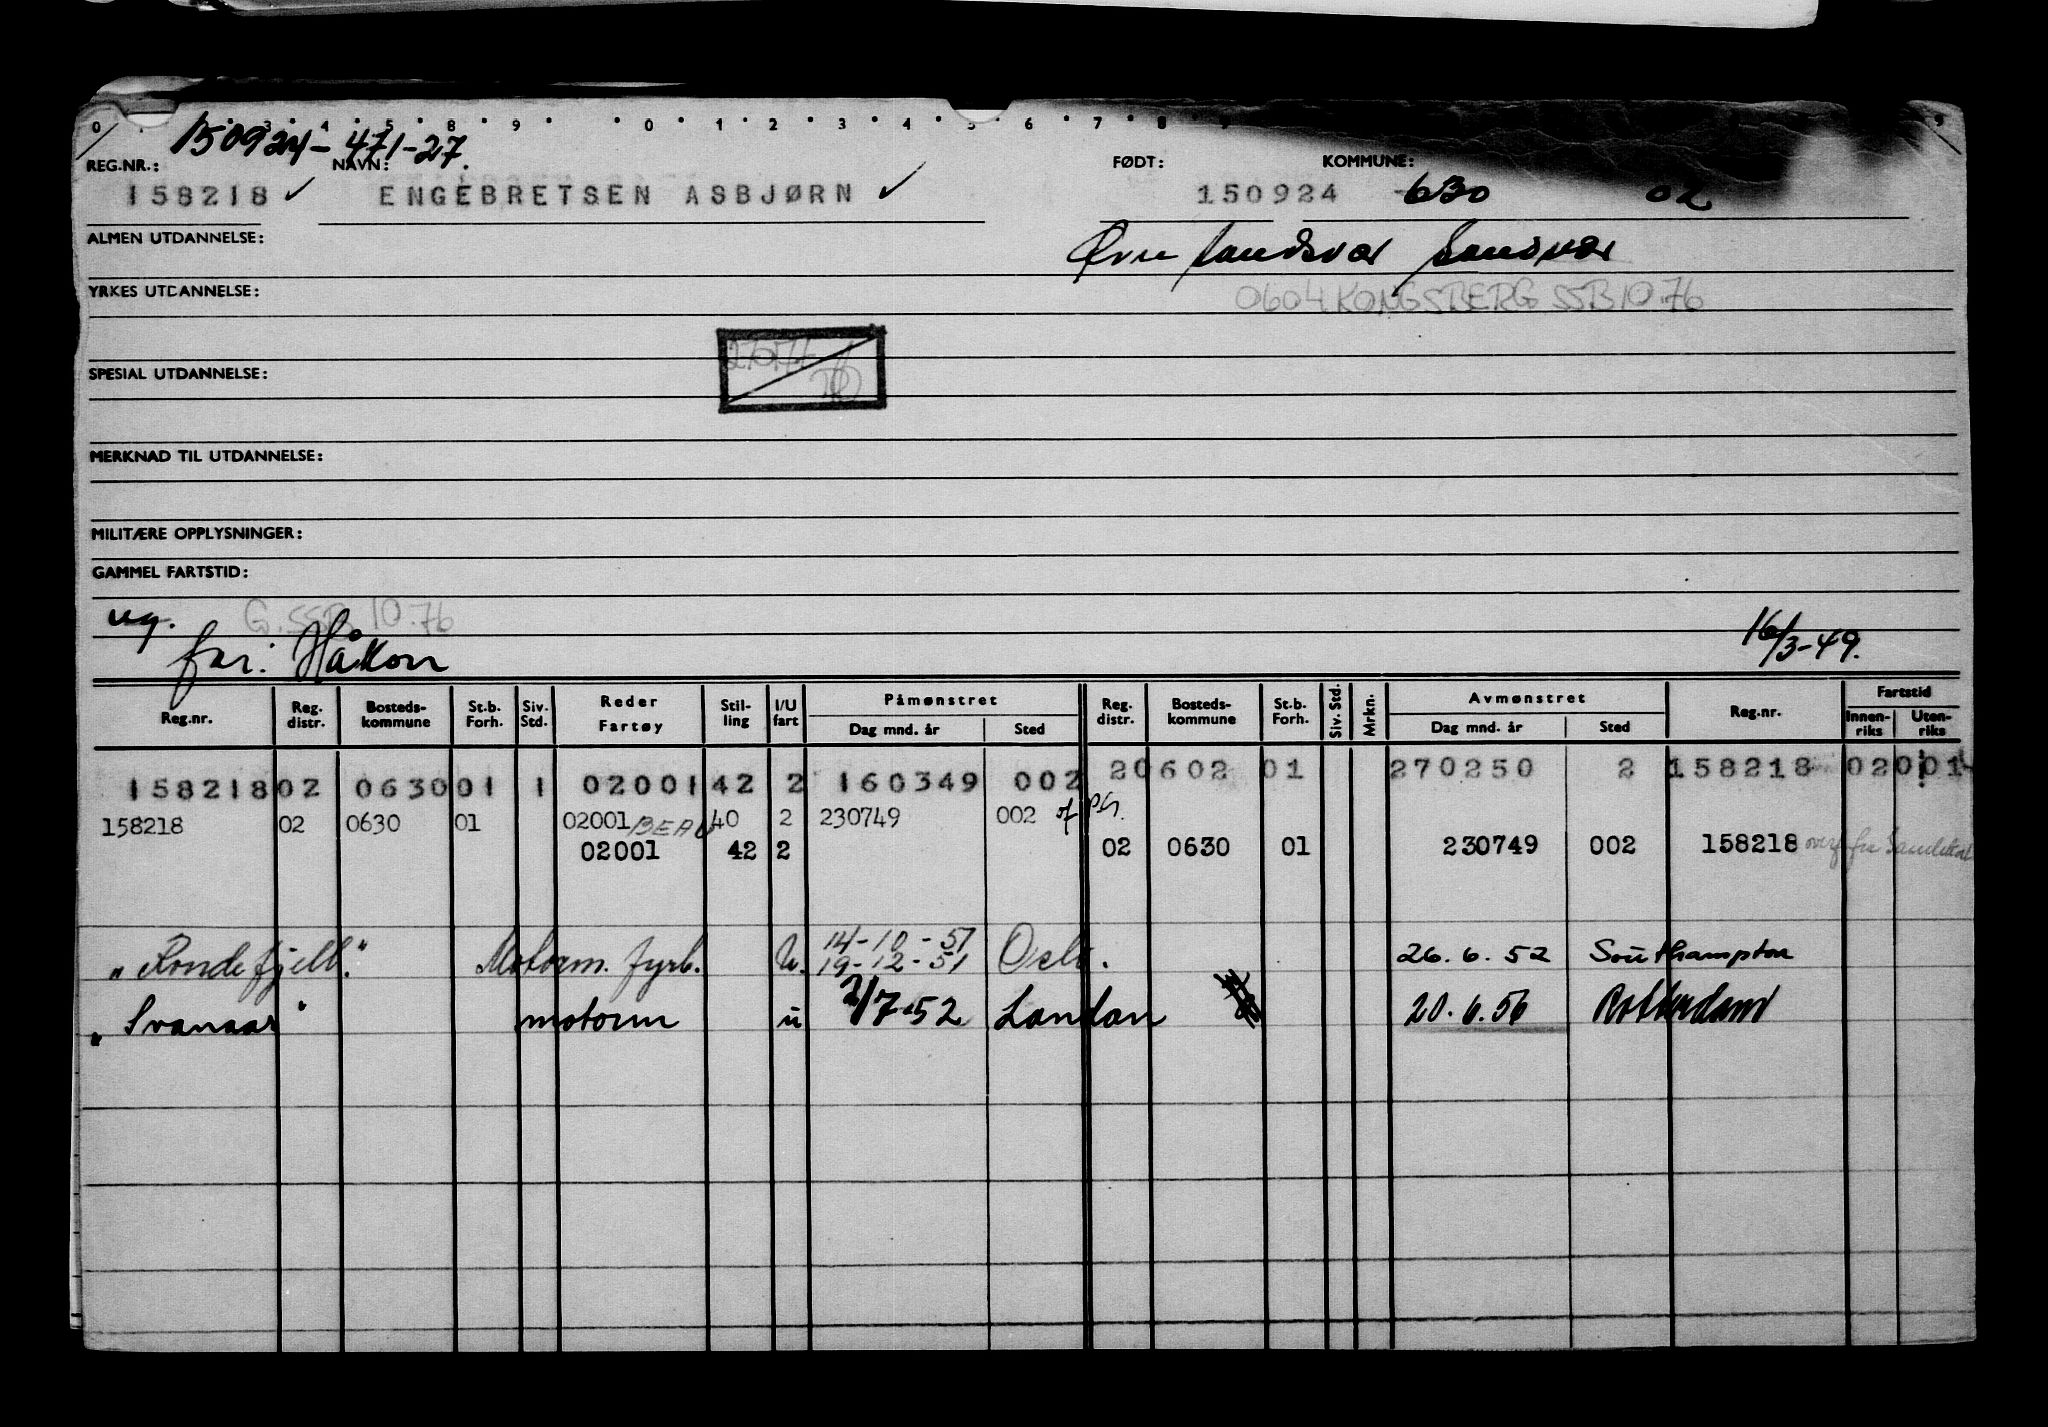 150924-471-27.
REG.NR.: NAVN: FØDT: KOMMUNE:
158218 ✓ ENGEBRETSEN ASBJØRN ✓ 150924 630 02
ALMEN UTDANNELSE: Øvre Sandsvær Sandsvær
YRKES UTDANNELSE: 0604 KONGSBERG SSB 10.76
SPESIAL UTDANNELSE:
MERKNAD TIL UTDANNELSE:
MILITÆRE OPPLYSNINGER:
GAMMEL FARTSTID:
ug. G. SSB 10.76
far: Håkon 16/3-49.
Reg.nr. Reg. distr. Bosteds-kommune St.b. Forh. Siv. Std. Reder Fartøy Stil-ling I/U fart Påmønstret Dag mnd. år Sted Reg. distr. Bosteds-kommune St.b. Forh. Siv. Std. Mrkn. Avmønstret Dag mnd. år Sted Reg.nr. Fartstid Innen-riks Uten-riks
158218 02 0630 01 1 02001 42 2 160349 002 20602 01 270250 2 158218 02001
158218 02 0630 01 02001 BEAU 40 2 230749 002
02001 42 2 02 0630 01 230749 002 158218
"Rondefjell" Motorm. fyrb. U. 14-10-51 19-12-51 Oslo. 26.6.52 Southampton
"Svanaar" motorm u 2/7-52 London 20.6.56 Rotterdam